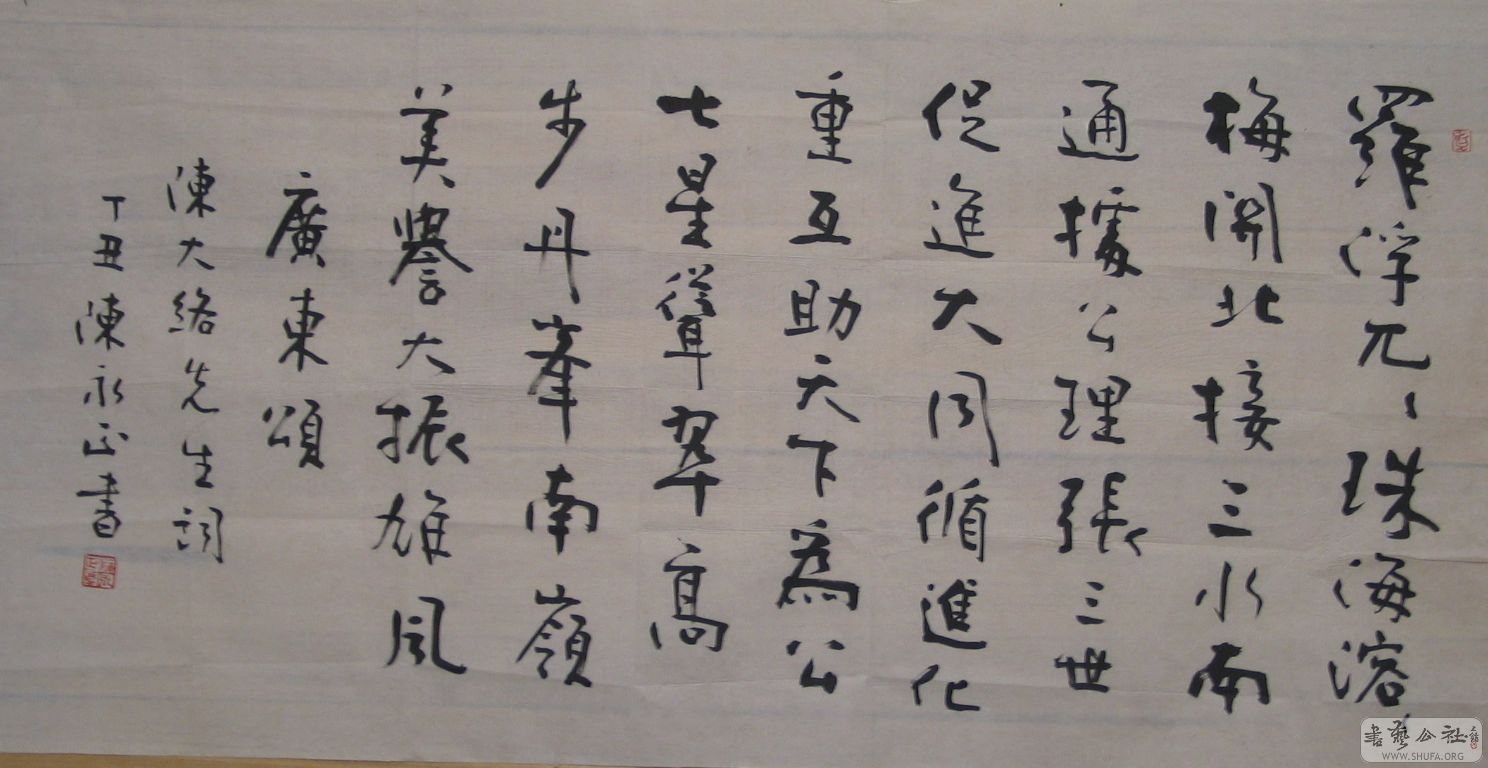 羅浮兀、珠海溶、
梅開北接三水南
通據公理張三世
促進大同循進化
重互助天下為公
七星聳翠高
步丹峯南嶺
美譽大振雄風
廣東頌
陳大絡先生詞
丁丑陳永正書
書藝公社
WWW.SHUFA.ORG